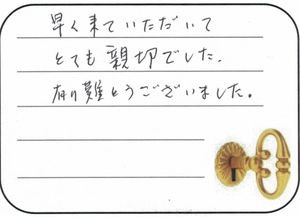 早く来ていただいて
とても親切でした.
有り難とうございました。